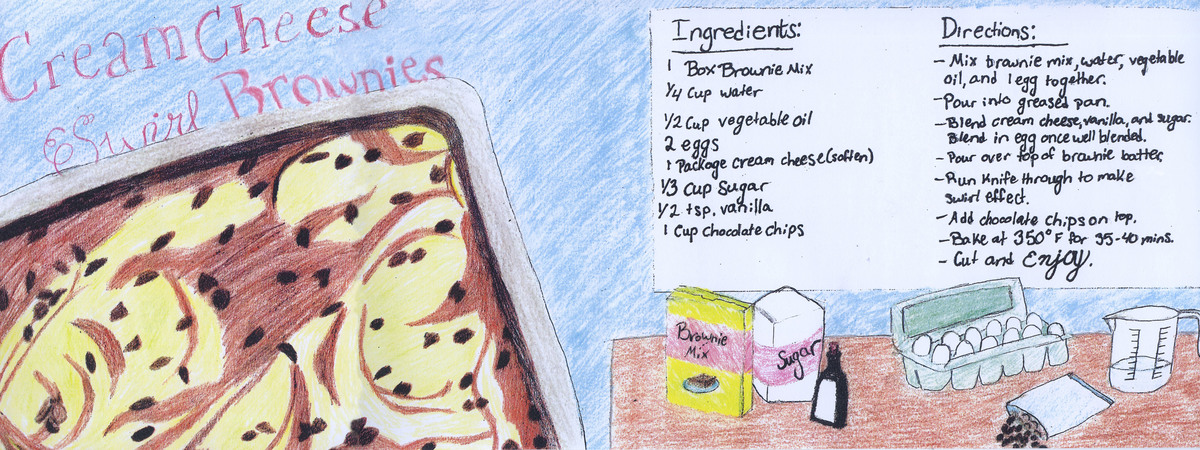 Cream Cheese
Swirl Brownies
Ingredients:
1 Box Brownie Mix
1/4 Cup water
1/2 Cup vegetable oil
2 eggs
1 Package cream cheese (soften)
1/3 Cup Sugar
1/2 tsp. vanilla
1 Cup chocolate chips
Directions:
- Mix brownie mix, water, vegetable
oil, and 1 egg together.
- Pour into greased pan.
- Blend cream cheese, vanilla, and sugar.
Blend in egg once well blended.
- Pour over top of brownie batter.
- Run Knife through to make
swirl effect.
- Add chocolate chips on top.
- Bake at 350°F for 35-40 mins.
- Cut and Enjoy.
Brownie
Mix
Sugar